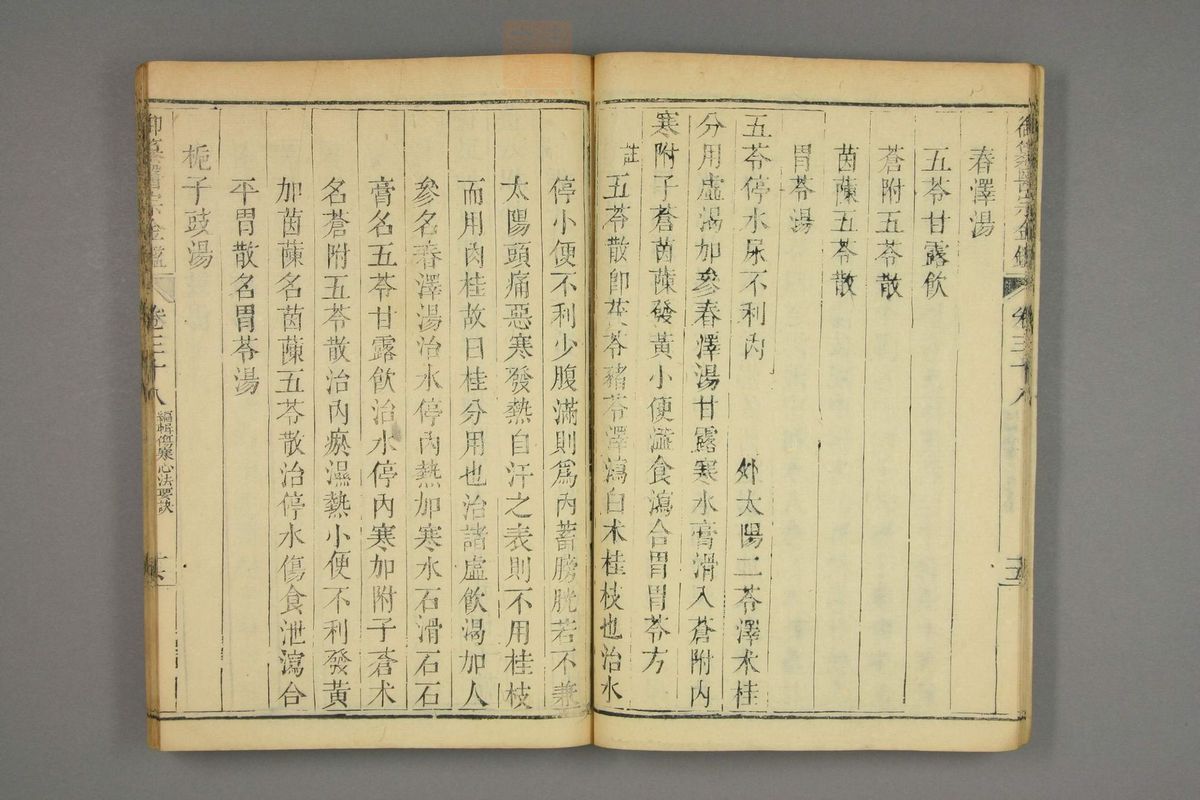 春澤湯
五苓甘露飲
蒼附五苓散
茵蔯五苓散
胃苓湯
五苓停水尿不利內 外太陽二苓澤术桂
分用虛渴加參春澤湯甘露寒水膏滑入蒼附內
寒附子蒼茵蔯發黃小便澁食瀉合胃胃苓方
註五苓散卽茯苓豬苓澤瀉白术桂枝也治水
停小便不利少腹滿則爲內蓄膀胱若不兼
太陽頭痛惡寒發熱自汗之表則不用桂枝
而用肉桂故曰桂分用也治諸虛飲渴加人
參名春澤湯治水停內熱加寒水石滑石石
膏名五苓甘露飲治水停內寒加附子蒼术
名蒼附五苓散治內瘀濕熱小便不利發黃
加茵蔯名茵蔯五苓散治停水傷食泄瀉合
平胃散名胃苓湯
梔子豉湯
御纂醫宗金鑑 卷三十八 編輯傷寒心法要訣